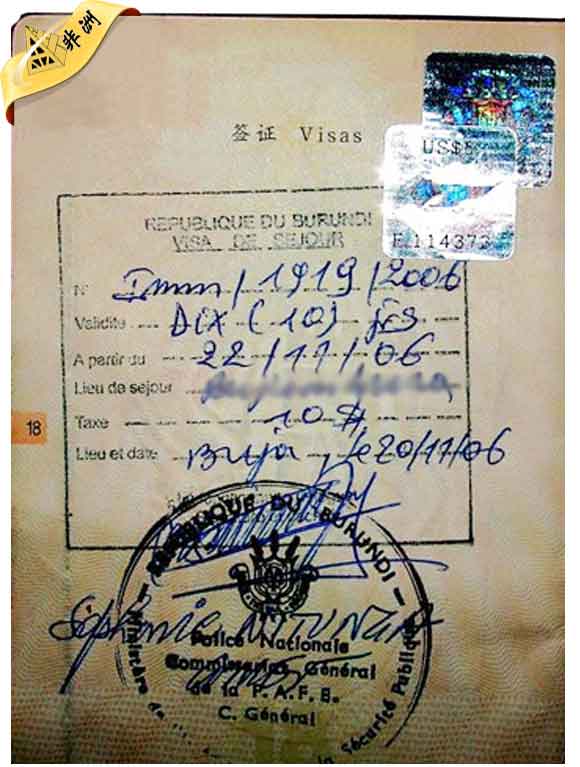 非洲
签证 Visas
US$5
E 114373
REPUBLIQUE DU BURUNDI
VISA DE SEJOUR
N° Imm/1919/2006
Validité DIX (10) jrs
A partir du 22/11/06
Lieu de sejour
Taxe 10 $
Lieu et date Buja, le 20/11/06
18
REPUBLIQUE DU BURUNDI
Police Nationale
Commissariat Général
de la P.A.F.E.
C. Général
Ministère de la Sécurité Publique